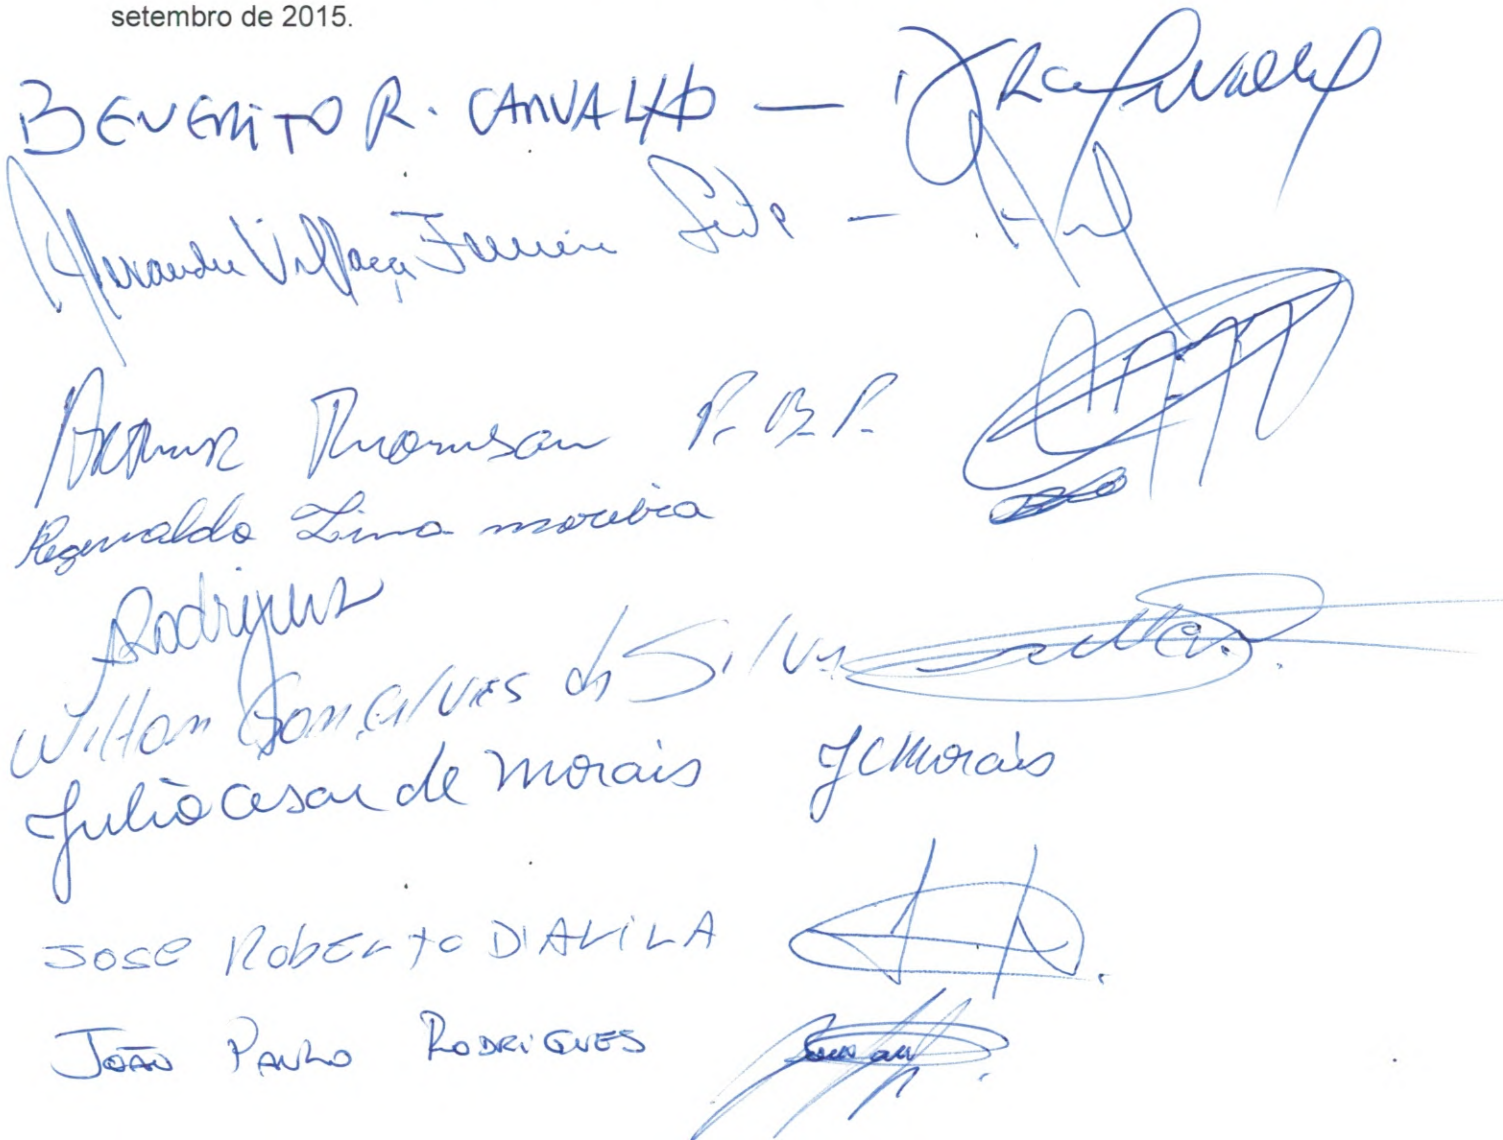 setembro de 2015.
BENEDITO R. CARVALHO —
Alexandre Villaça Ferreira Leite —
Arthur Thomson P. B. P.
Regenaldo Lima moreira
Rodrigues
Wilton Gonçalves da Silva
Julio Cesar de Morais JCMorais
JOSE ROBERTO D'AVILA
JOÃO PAULO RODRIGUES